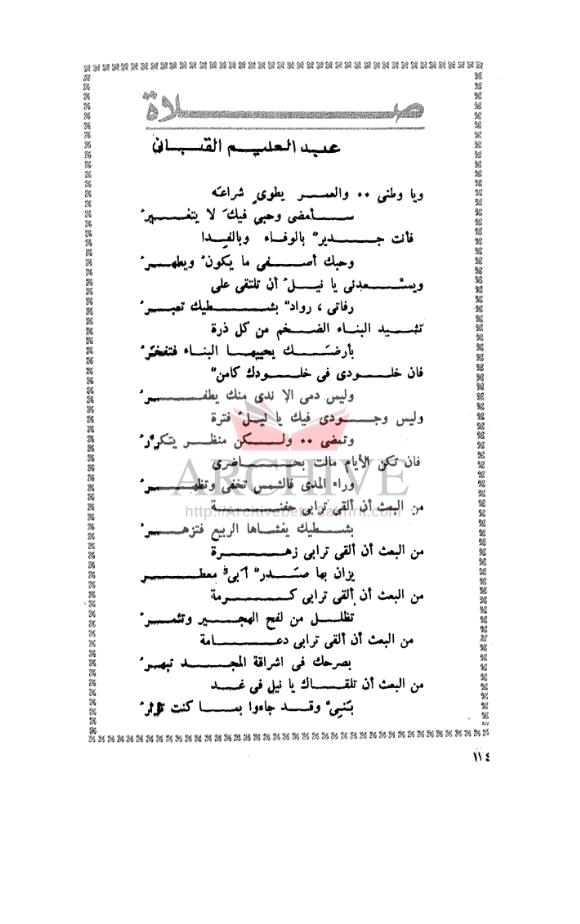 صلاة
عبد العليم القبانى
ويا وطنى ٠٠ والعمر يطوى شراعَه
سأمضى وحبى فيكَ لا يتغيرُ
فأنت جديرٌ بالوفاء وبالفِدا
وحبك أصفى ما يكونُ ويطهرُ
ويسْعدنى يا نيلُ أن تلتقى على
رفاتى ، روادٌ بشطيك تعبرُ
تشيد البناء الضخم من كل ذرة
بأرضكَ يحييها البناء فتفخرُ
فان خلودى فى خلودك كامنٌ
وليس دمى الا ندى منك يطفرُ
وليس وجودى فيك يا نيلُ فترة
وتمضى ٠٠ ولكن منظر يتكررُ
فان تكن الأيام مالت بحاضرى
وراء المدى فالشمس تخفى وتظهرُ
من البعث أن ألقى ترابى حفنة
بشطيك يغشاها الربيع فتزهرُ
من البعث أن ألقى ترابى زهرة
يزان بها صَدرٌ أبىٌّ معطر
من البعث أن ألقى ترابى كرمة
تظلل من لفح الهجير وتثمرُ
من البعث أن ألقى ترابى دعامة
بصرحك فى اشراقة المجد تبهرُ
من البعث أن تلقاك يا نيل فى غد
بَنىَّ وقد جاءوا بما كنت
١١٤
ARCHIVE